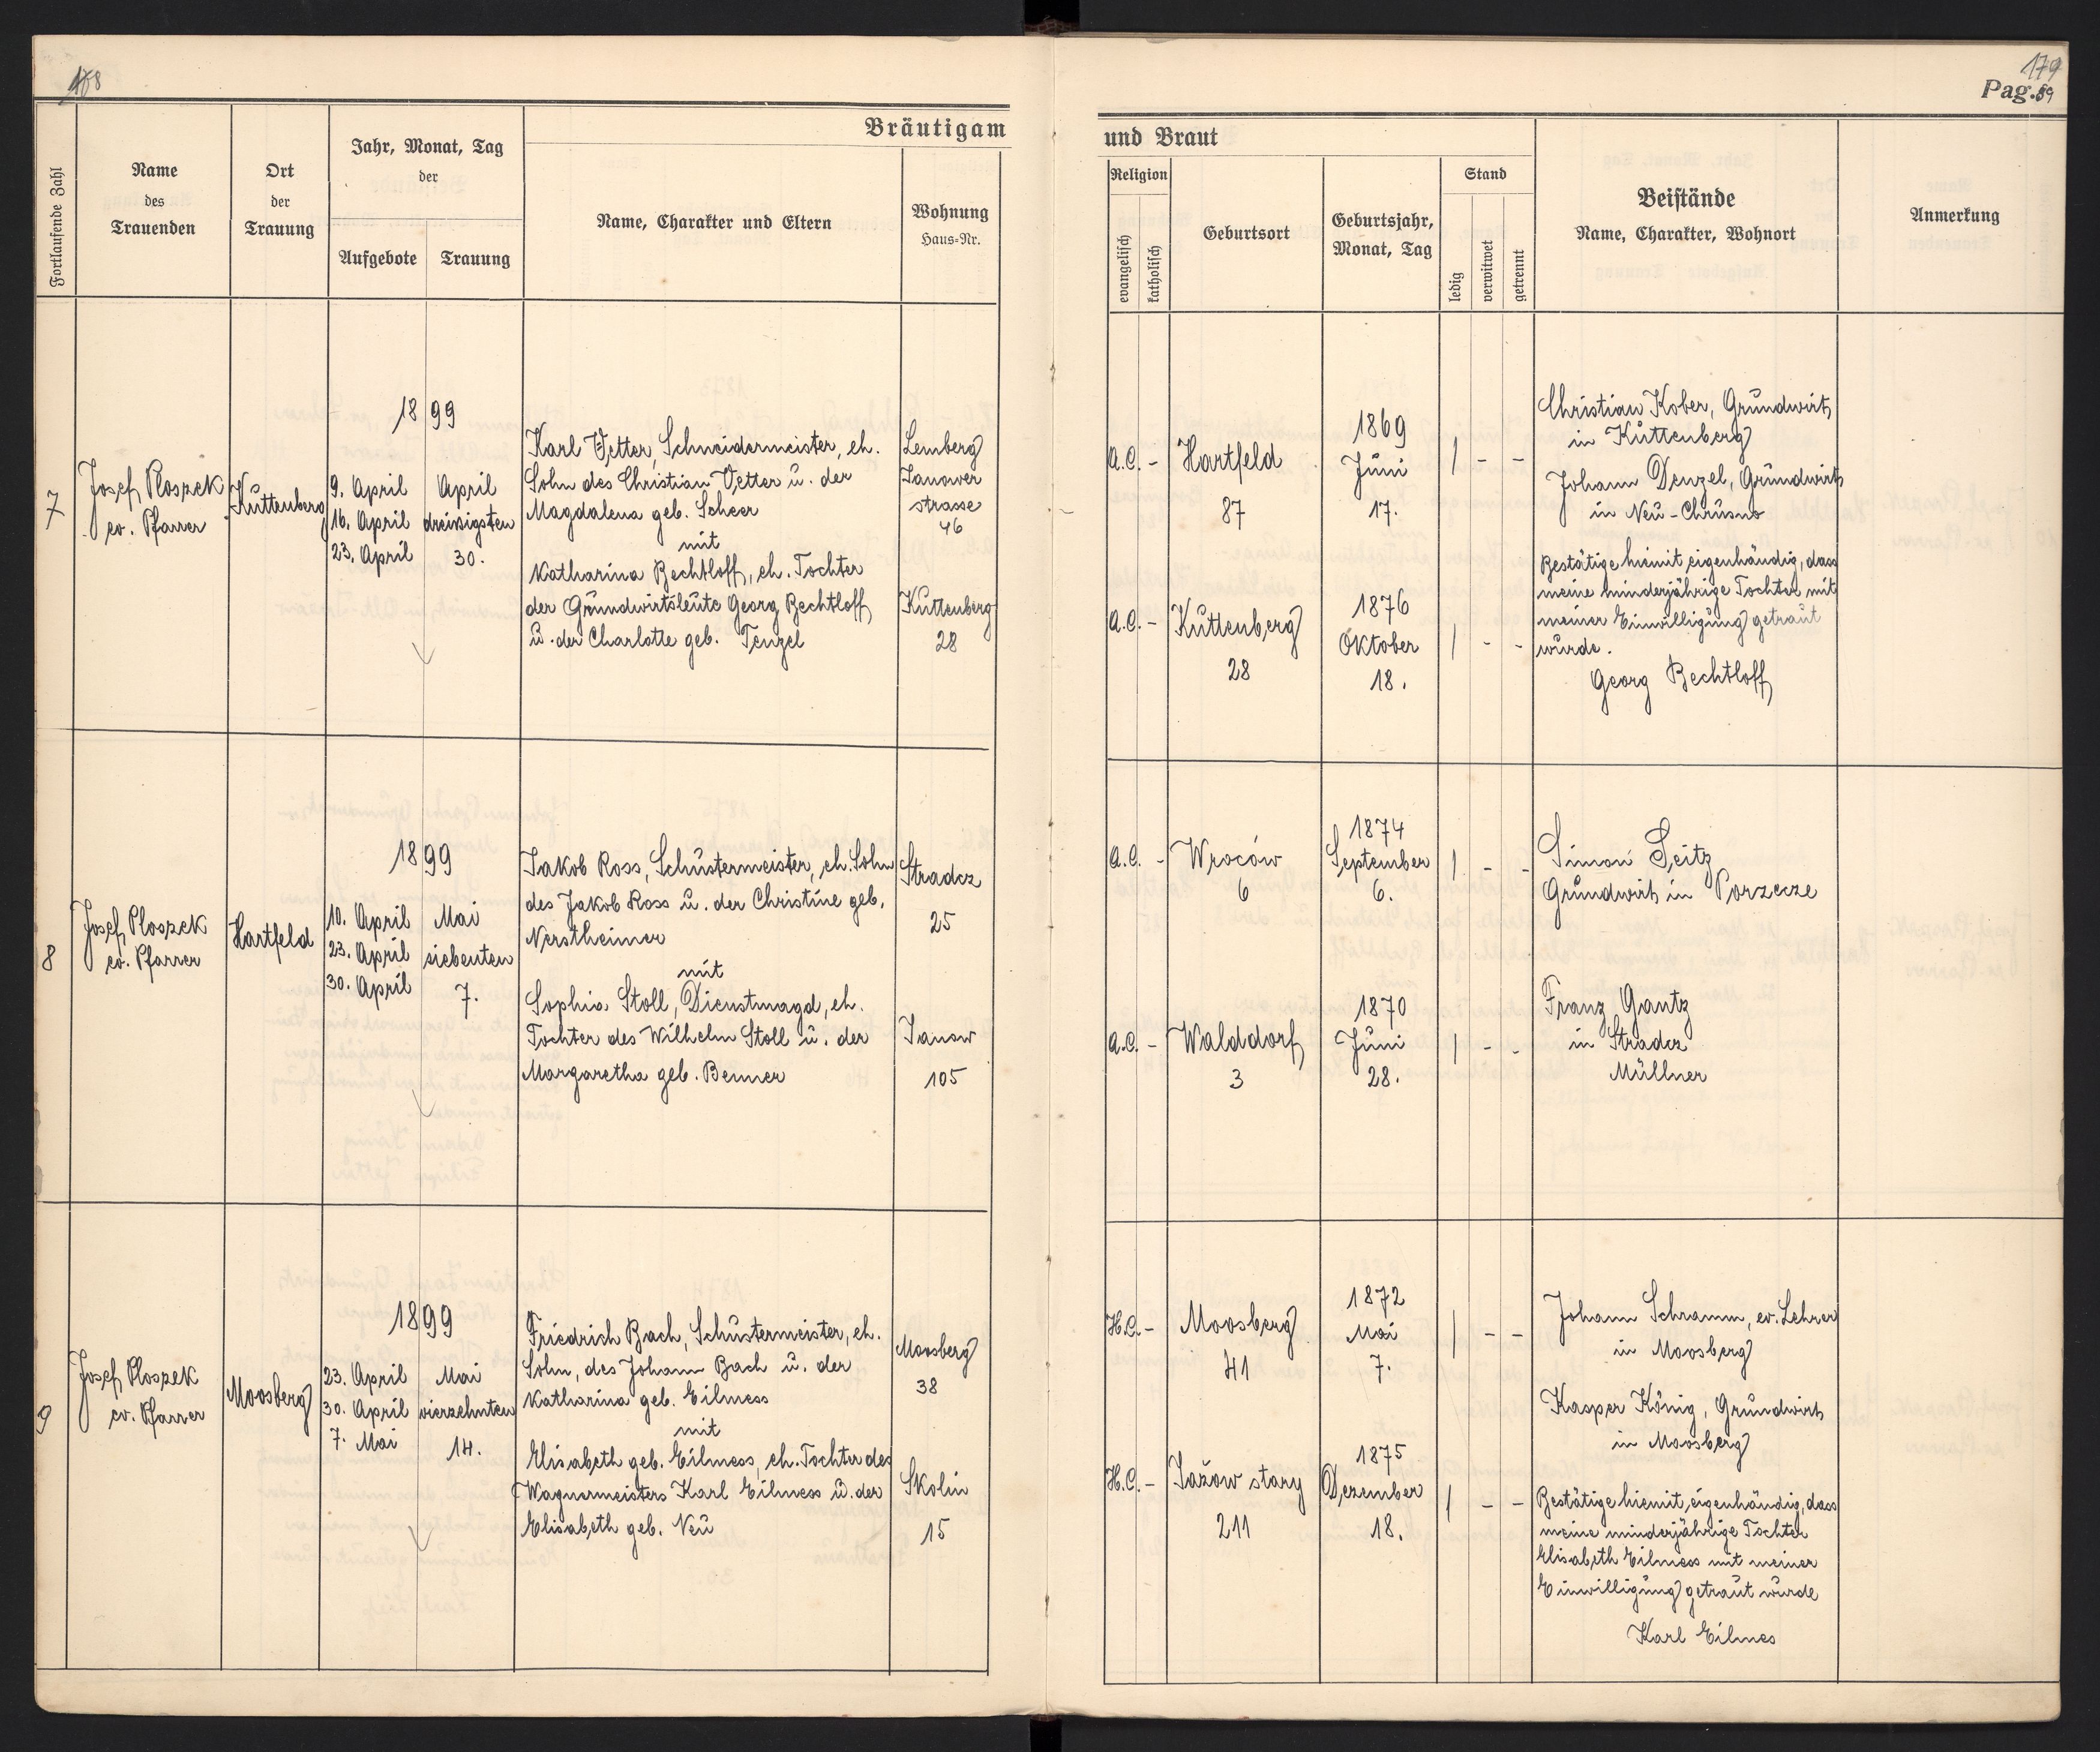 178
179
Pag. 89
Bräutigam
und Braut
Fortlaufende Zahl
Name
des
Trauenden
Ort
der
Trauung
Jahr, Monat, Tag
der
Aufgebote
Trauung
Name, Charakter und Eltern
Wohnung
Haus-Nr.
Religion
evangelisch
katholisch
Geburtsort
Geburtsjahr,
Monat, Tag
Stand
ledig
verwitwet
getrennt
Beistände
Name, Charakter, Wohnort
Anmerkung
7
Josef Ploszek
ev. Pfarrer
Kuttenberg
1899
9. April
16. April
23. April
April
dreißigsten
30.
Karl Vetter, Schneidermeister, eh.
Sohn des Christian Vetter u. der
Magdalena geb. Scheer
mit
Katharina Bechtloff, eh. Tochter
der Grundwirtsleute Georg Bechtloff
u. der Charlotte geb. Tenzel
Lemberg
Janower
strasse
46
Kuttenberg
28
A.C. -
Hartfeld
87
1869
Juni
17.
| - -
A.C. -
Kuttenberg
28
1876
Oktober
18.
| - -
Christian Kober, Grundwirt
in Kuttenberg
Johann Denzel, Grundwirt
in Neu-Chrusno
Bestätige hiemit eigenhändig, dass
meine minderjährige Tochter mit
meiner Einwilligung getraut
wurde.
Georg Bechtloff
8
Josef Ploszek
ev. Pfarrer
Hartfeld
1899
10. April
23. April
30. April
Mai
siebenten
7.
Jakob Ross, Schustermeister, eh. Sohn
des Jakob Ross u. der Christine geb.
Nerstheimer
mit
Sophia Stoll, Dienstmagd, eh.
Tochter des Wilhelm Stoll u. der
Margaretha geb. Benner
Stradcz
25
Janow
105
A.C. -
Wroców
6
1874
September
6.
| - -
A.C. -
Walddorf
3
1870
Juni
28.
| - -
Simon Seitz
Grundwirt in Porzecze
Franz Gantz
in Stradcz
Müllner
9
Josef Ploszek
ev. Pfarrer
Moosberg
1899
23. April
30. April
7. Mai
Mai
vierzehnten
14.
Friedrich Bach, Schustermeister, eh.
Sohn, des Johann Bach u. der
Katharina geb. Eilmess
mit
Elisabeth geb. Eilmess, eh. Tochter des
Wagnermeisters Karl Eilmess u. der
Elisabeth geb. Neu
Moosberg
38
Skolin
15
H.C. -
Moosberg
41
1872
Mai
7.
| - -
H.C. -
Jażow stary
211
1875
Dezember
18.
| - -
Johann Schramm, ev. Lehrer
in Moosberg
Kasper König, Grundwirt
in Moosberg
Bestätige hiemit, eigenhändig, dass
meine minderjährige Tochter
Elisabeth Eilmess mit meiner
Einwilligung getraut wurde
Karl Eilmes